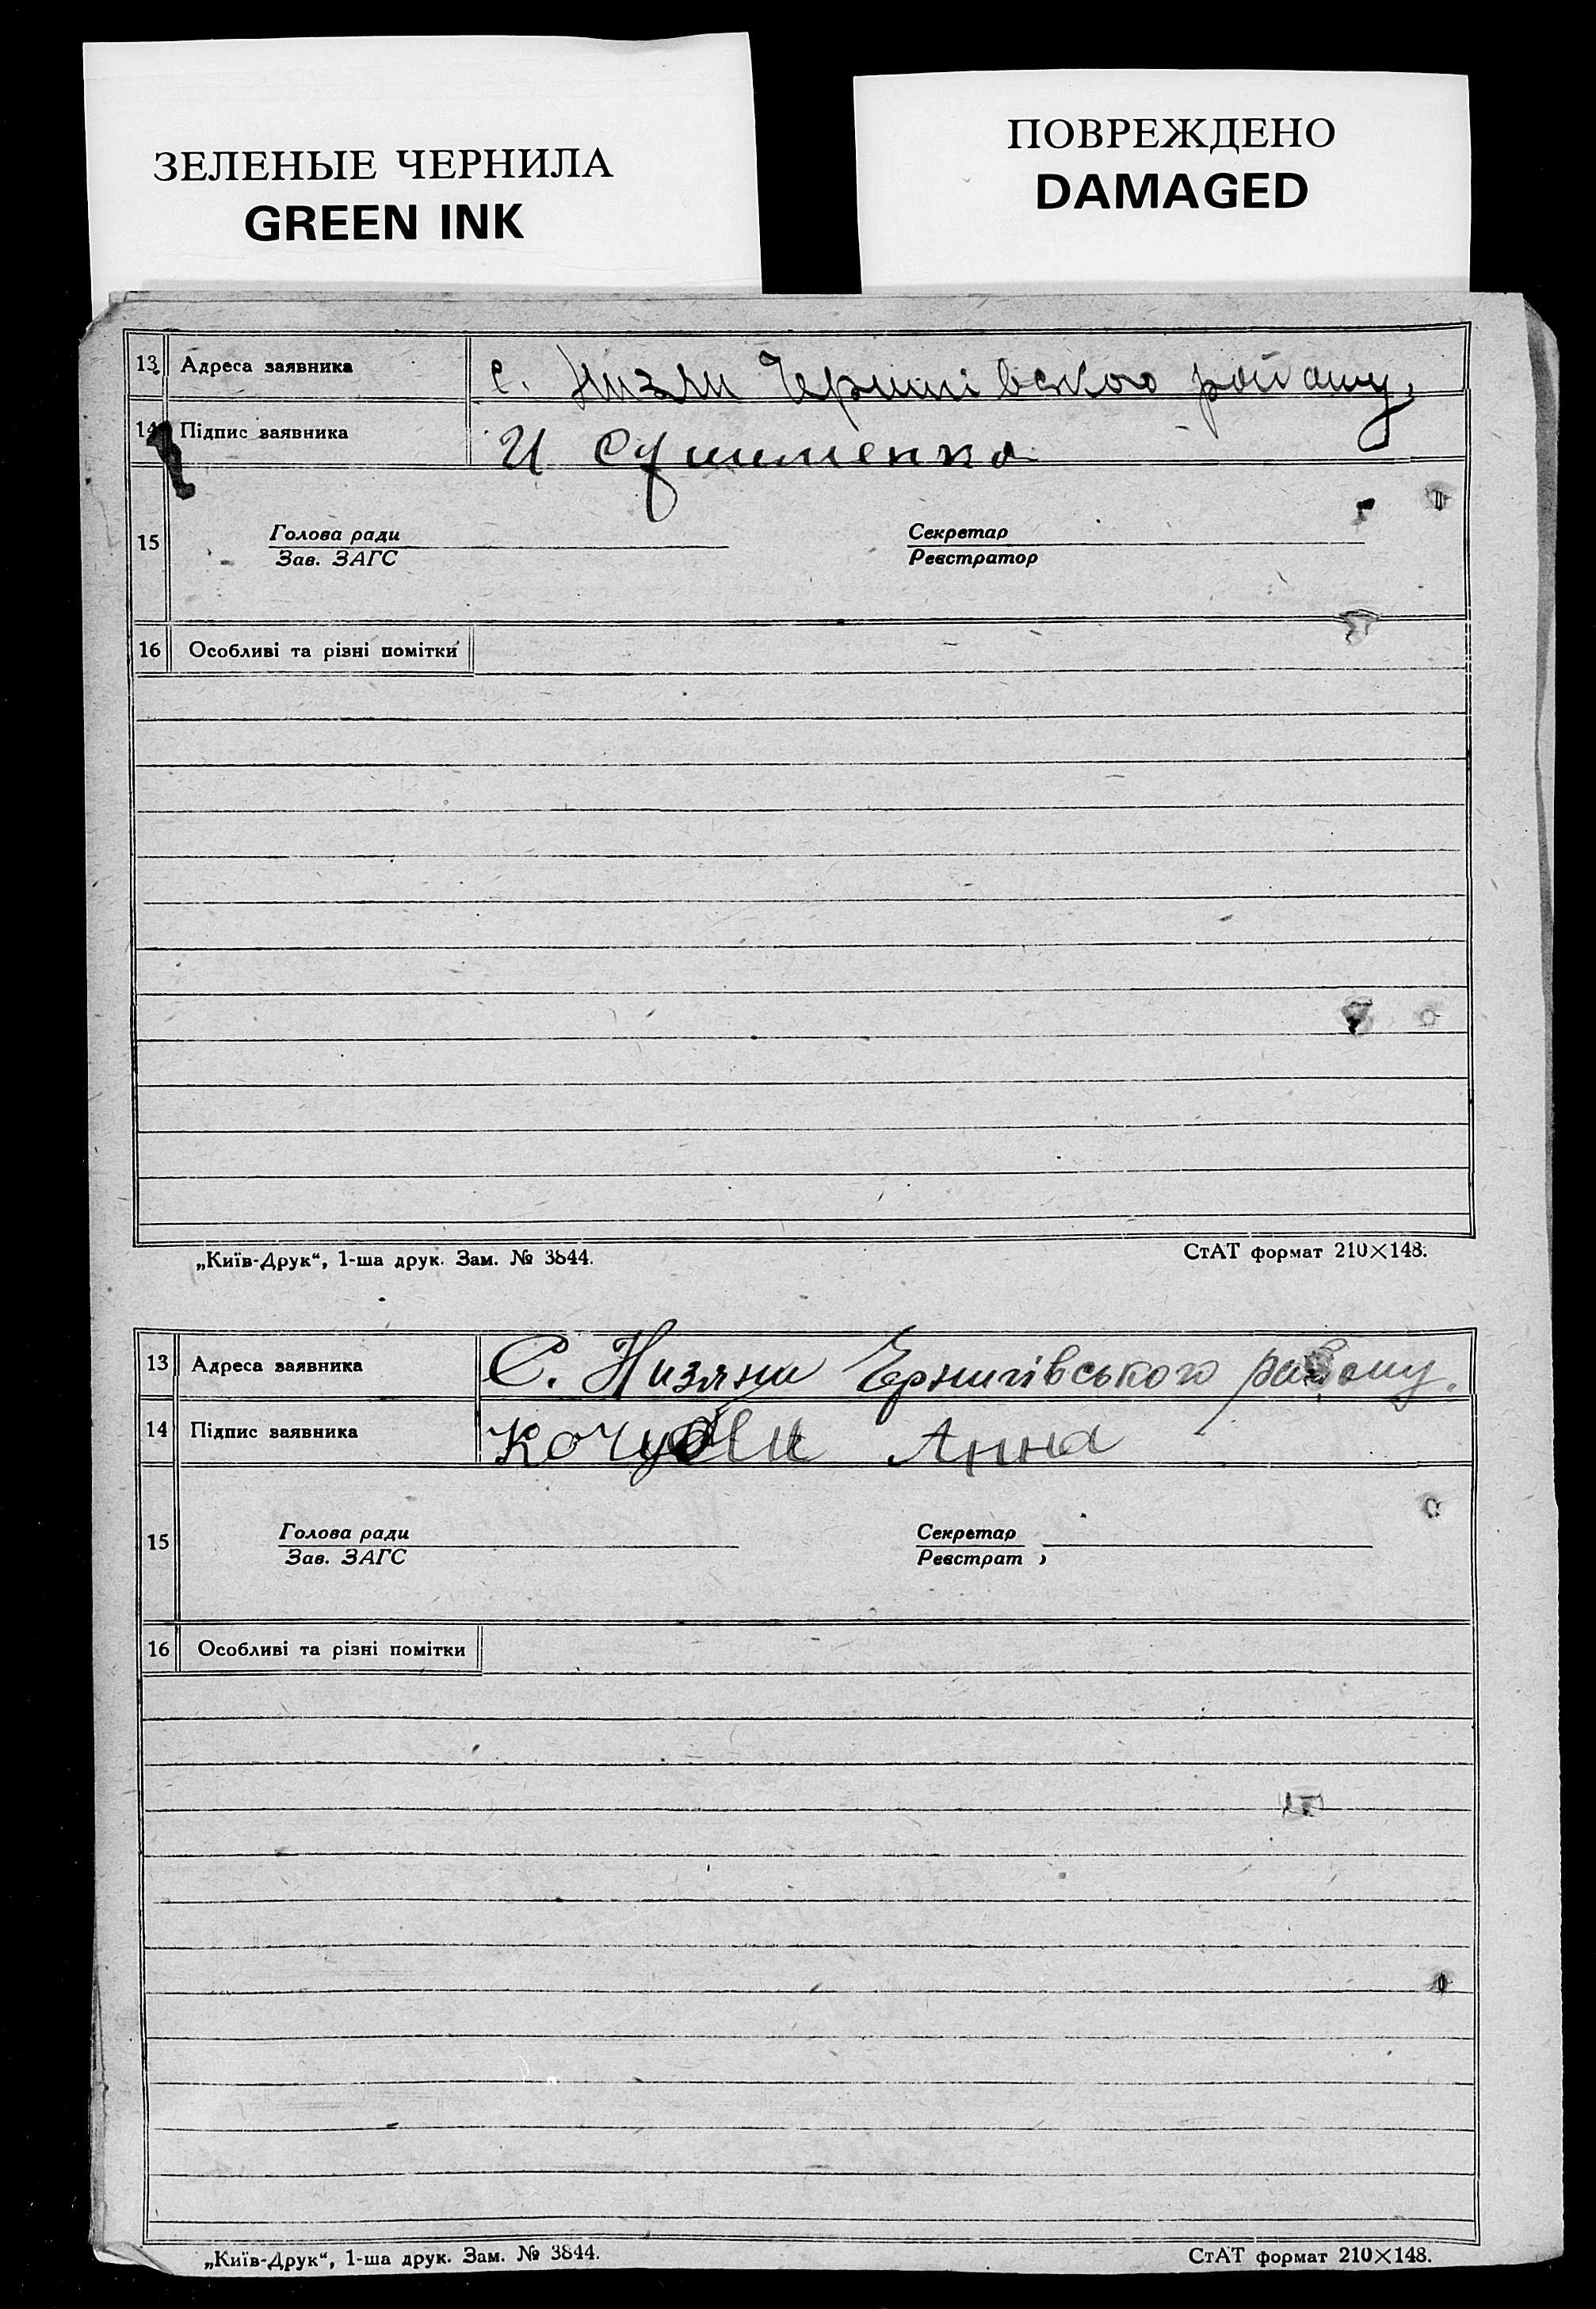 ЗЕЛЕНЫЕ ЧЕРНИЛА
GREEN INK
ПОВРЕЖДЕНО
DAMAGED
13 Адреса заявника с. Чернигівського району.
14 Підпис заявника И
15 Голова ради Секретар
Зав. ЗАГС Реєстратор
16 Особливі та різні помітки
„Київ-Друк“, 1-ша друк. Зам. № 3844. СтАТ формат 210×148.
13 Адреса заявника С. Низяни Чернигівського району.
14 Підпис заявника Анна
15 Голова ради Секретар
Зав. ЗАГС Реєстрат
16 Особливі та різні помітки
„Київ-Друк“, 1-ша друк. Зам. № 3844. СтАТ формат 210×148.